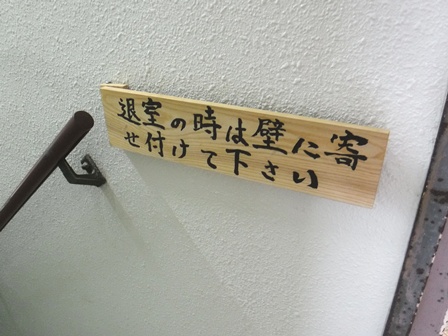 退室の時は壁に寄
せ付けて下さい